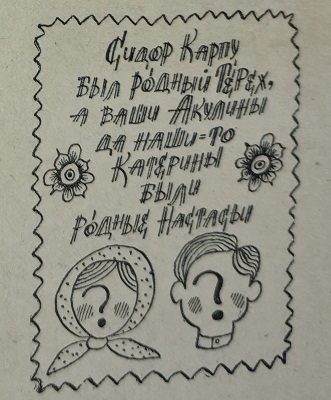 Сидор Карпу
был ро́дный Те́рех,
а ваши Акулины
да наши-то
Катерины
были
ро́дные Настасьи
? ?